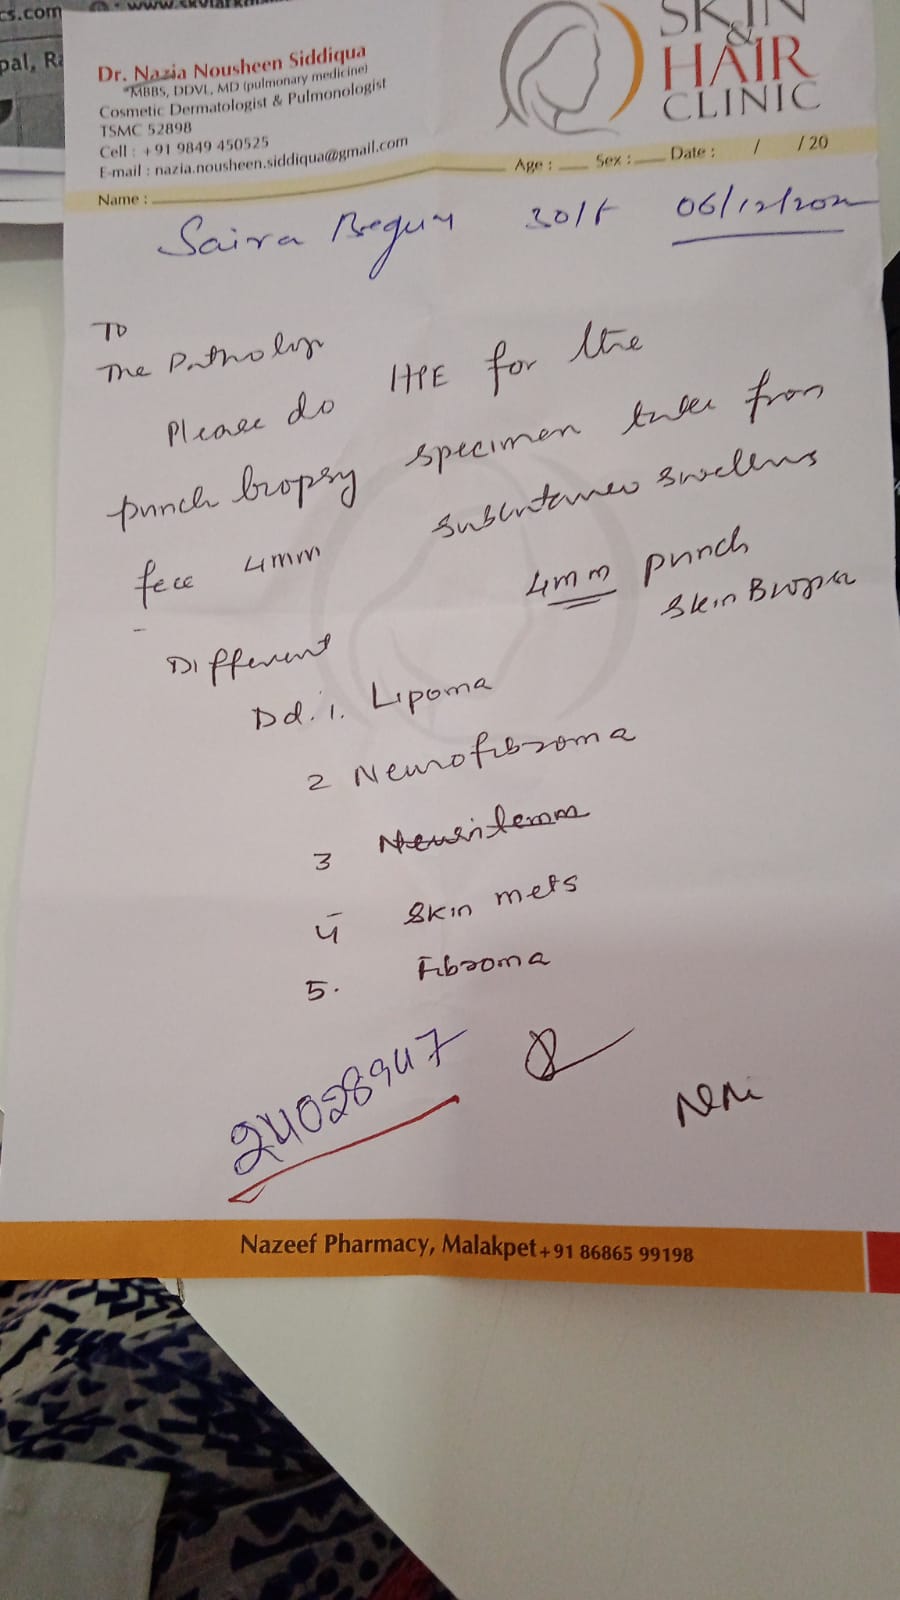 cs.com
www.skylark
pal, Ra
SKIN
&
HAIR
CLINIC
Dr. Nazia Nousheen Siddiqua
MBBS, DDVL, MD (pulmonary medicine)
Cosmetic Dermatologist & Pulmonologist
TSMC 52898
Cell : +91 9849 450525
E-mail : nazia.nousheen.siddiqua@gmail.com
Name : Age : Sex : Date : / / 20
Saira Begum 30/F 06/12/202
To
The Patholy
Please do HPE for the
punch biopsy specimen taken from
face 4mm subcutaneo swellins
4mm punch
skin Biopsy
Different
Dd. 1. Lipoma
2 Neurofibroma
3
4 Skin mets
5. Fibroma
24028947
Nazeef Pharmacy, Malakpet +91 86865 99198